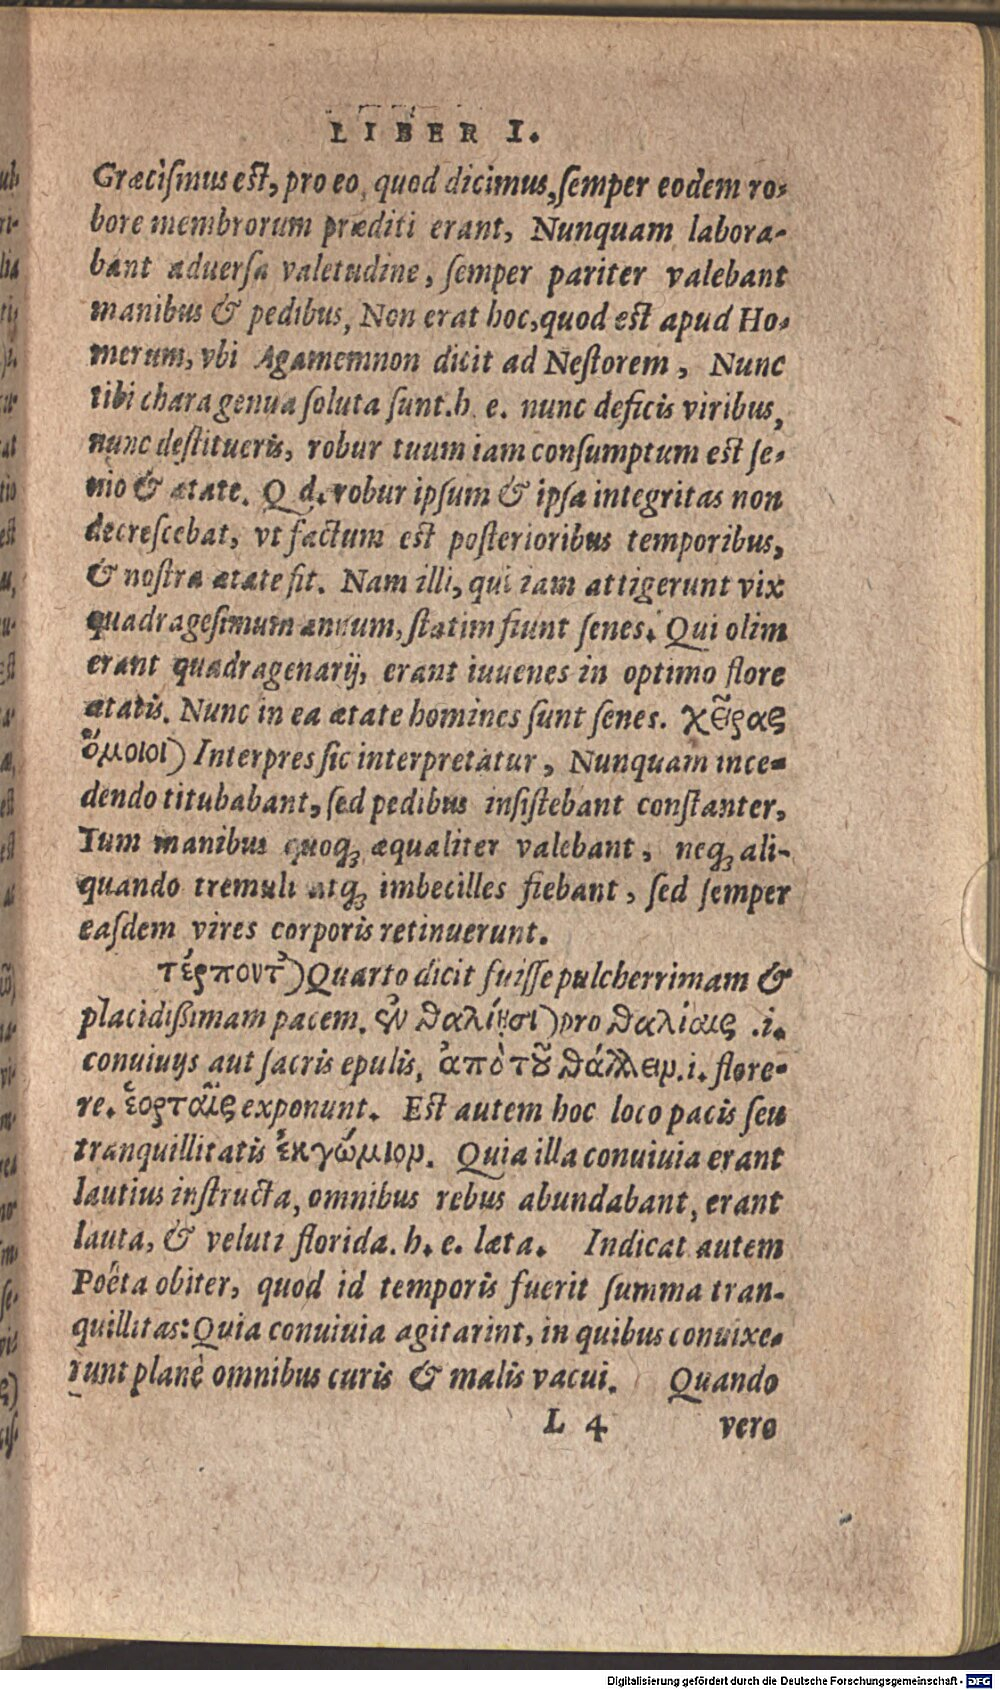 LIBER I.
Græciſmus eſt, pro eo, quod dicimus, ſemper eodem ro-
bore membrorum præditi erant, Nunquam labora-
bant aduerſa valetudine, ſemper pariter valebant
manibus & pedibus, Non erat hoc, quod eſt apud Ho-
merum, vbi Agamemnon dicit ad Neſtorem, Nunc
tibi chara genua ſoluta ſunt. h. e. nunc deficis viribus,
nunc deſtitueris, robur tuum iam conſumptum eſt ſe-
nio & ætate. Q. d. robur ipſum & ipſa integritas non
decreſcebat, vt factum est poſterioribus temporibus,
& noſtra ætate fit. Nam illi, qui iam attigerunt vix
quadrageſimum annum, ſtatim fiunt ſenes. Qui olim
erant quadragenarij, erant iuuenes in optimo flore
ætatis. Nunc in ea ætate homines ſunt ſenes. χεῖρας
ὅμοιοι) Interpres ſic interpretatur, Nunquam ince-
dendo titubabant, ſed pedibus inſiſtebant conſtanter,
Tum manibus quoq; æqualiter valebant, neq; ali-
quando tremuli atq; imbecilles fiebant, ſed ſemper
eaſdem vires corporis retinuerunt.
τέρποντ') Quarto dicit fuiſſe pulcherrimam &
placidißimam pacem. ἐν θαλίῃσι) pro θαλίαις .i.
conuiuijs aut ſacris epulis, ἀπὸ τοῦ θάλλειν. i. flore-
re. ἑορταῖς exponunt. Est autem hoc loco pacis ſeu
tranquillitatis ἐκγώμιον. Quia illa conuiuia erant
lautius inſtructa, omnibus rebus abundabant, erant
lauta, & veluti florida. h. e. læta. Indicat autem
Poëta obiter, quod id temporis fuerit ſumma tran-
quillitas: Quia conuiuia agitarint, in quibus conuixe-
runt planè omnibus curis & malis vacui. Quando
L 4 vero
Digitalisierung gefördert durch die Deutsche Forschungsgemeinschaft - DFG